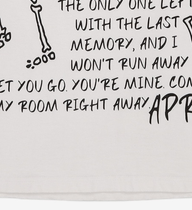 THE ONLY ONE LEFT
WITH THE LAST
MEMORY, AND I
WON'T RUN AWAY
LET YOU GO. YOU'RE MINE.
MY ROOM RIGHT AWAY